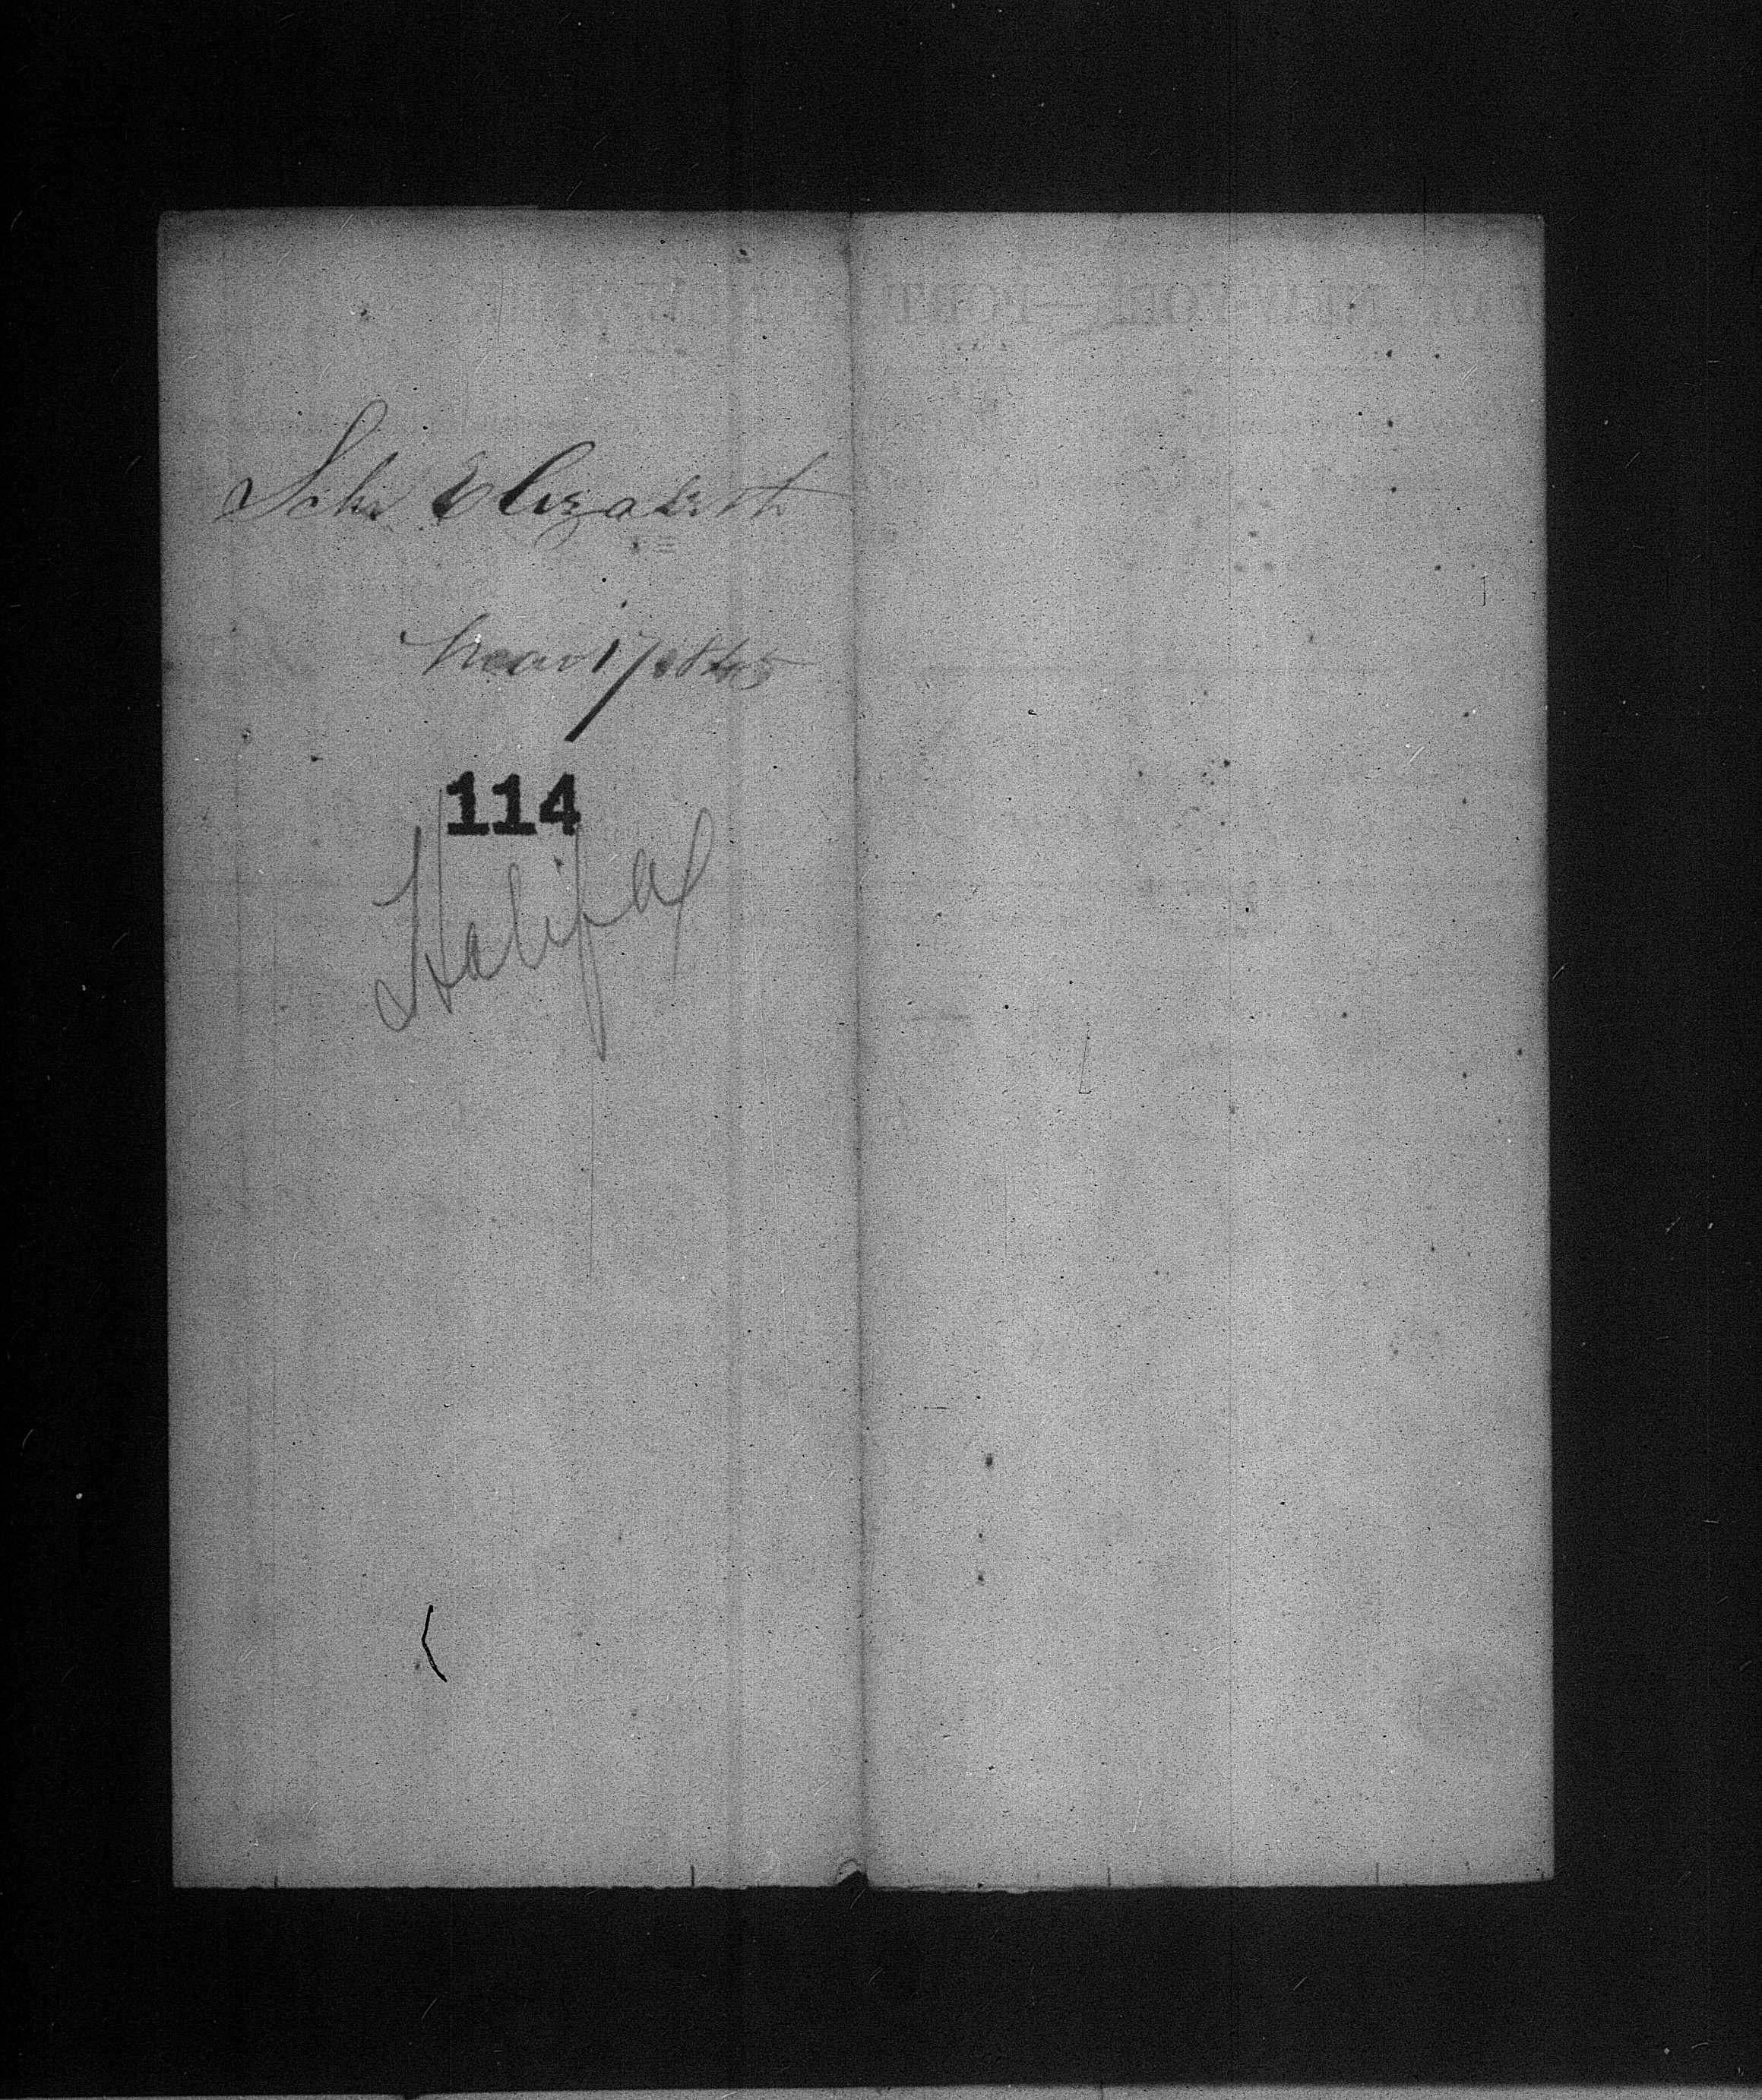 Schr Elizabeth
Mar 17 1845
114
Halifax